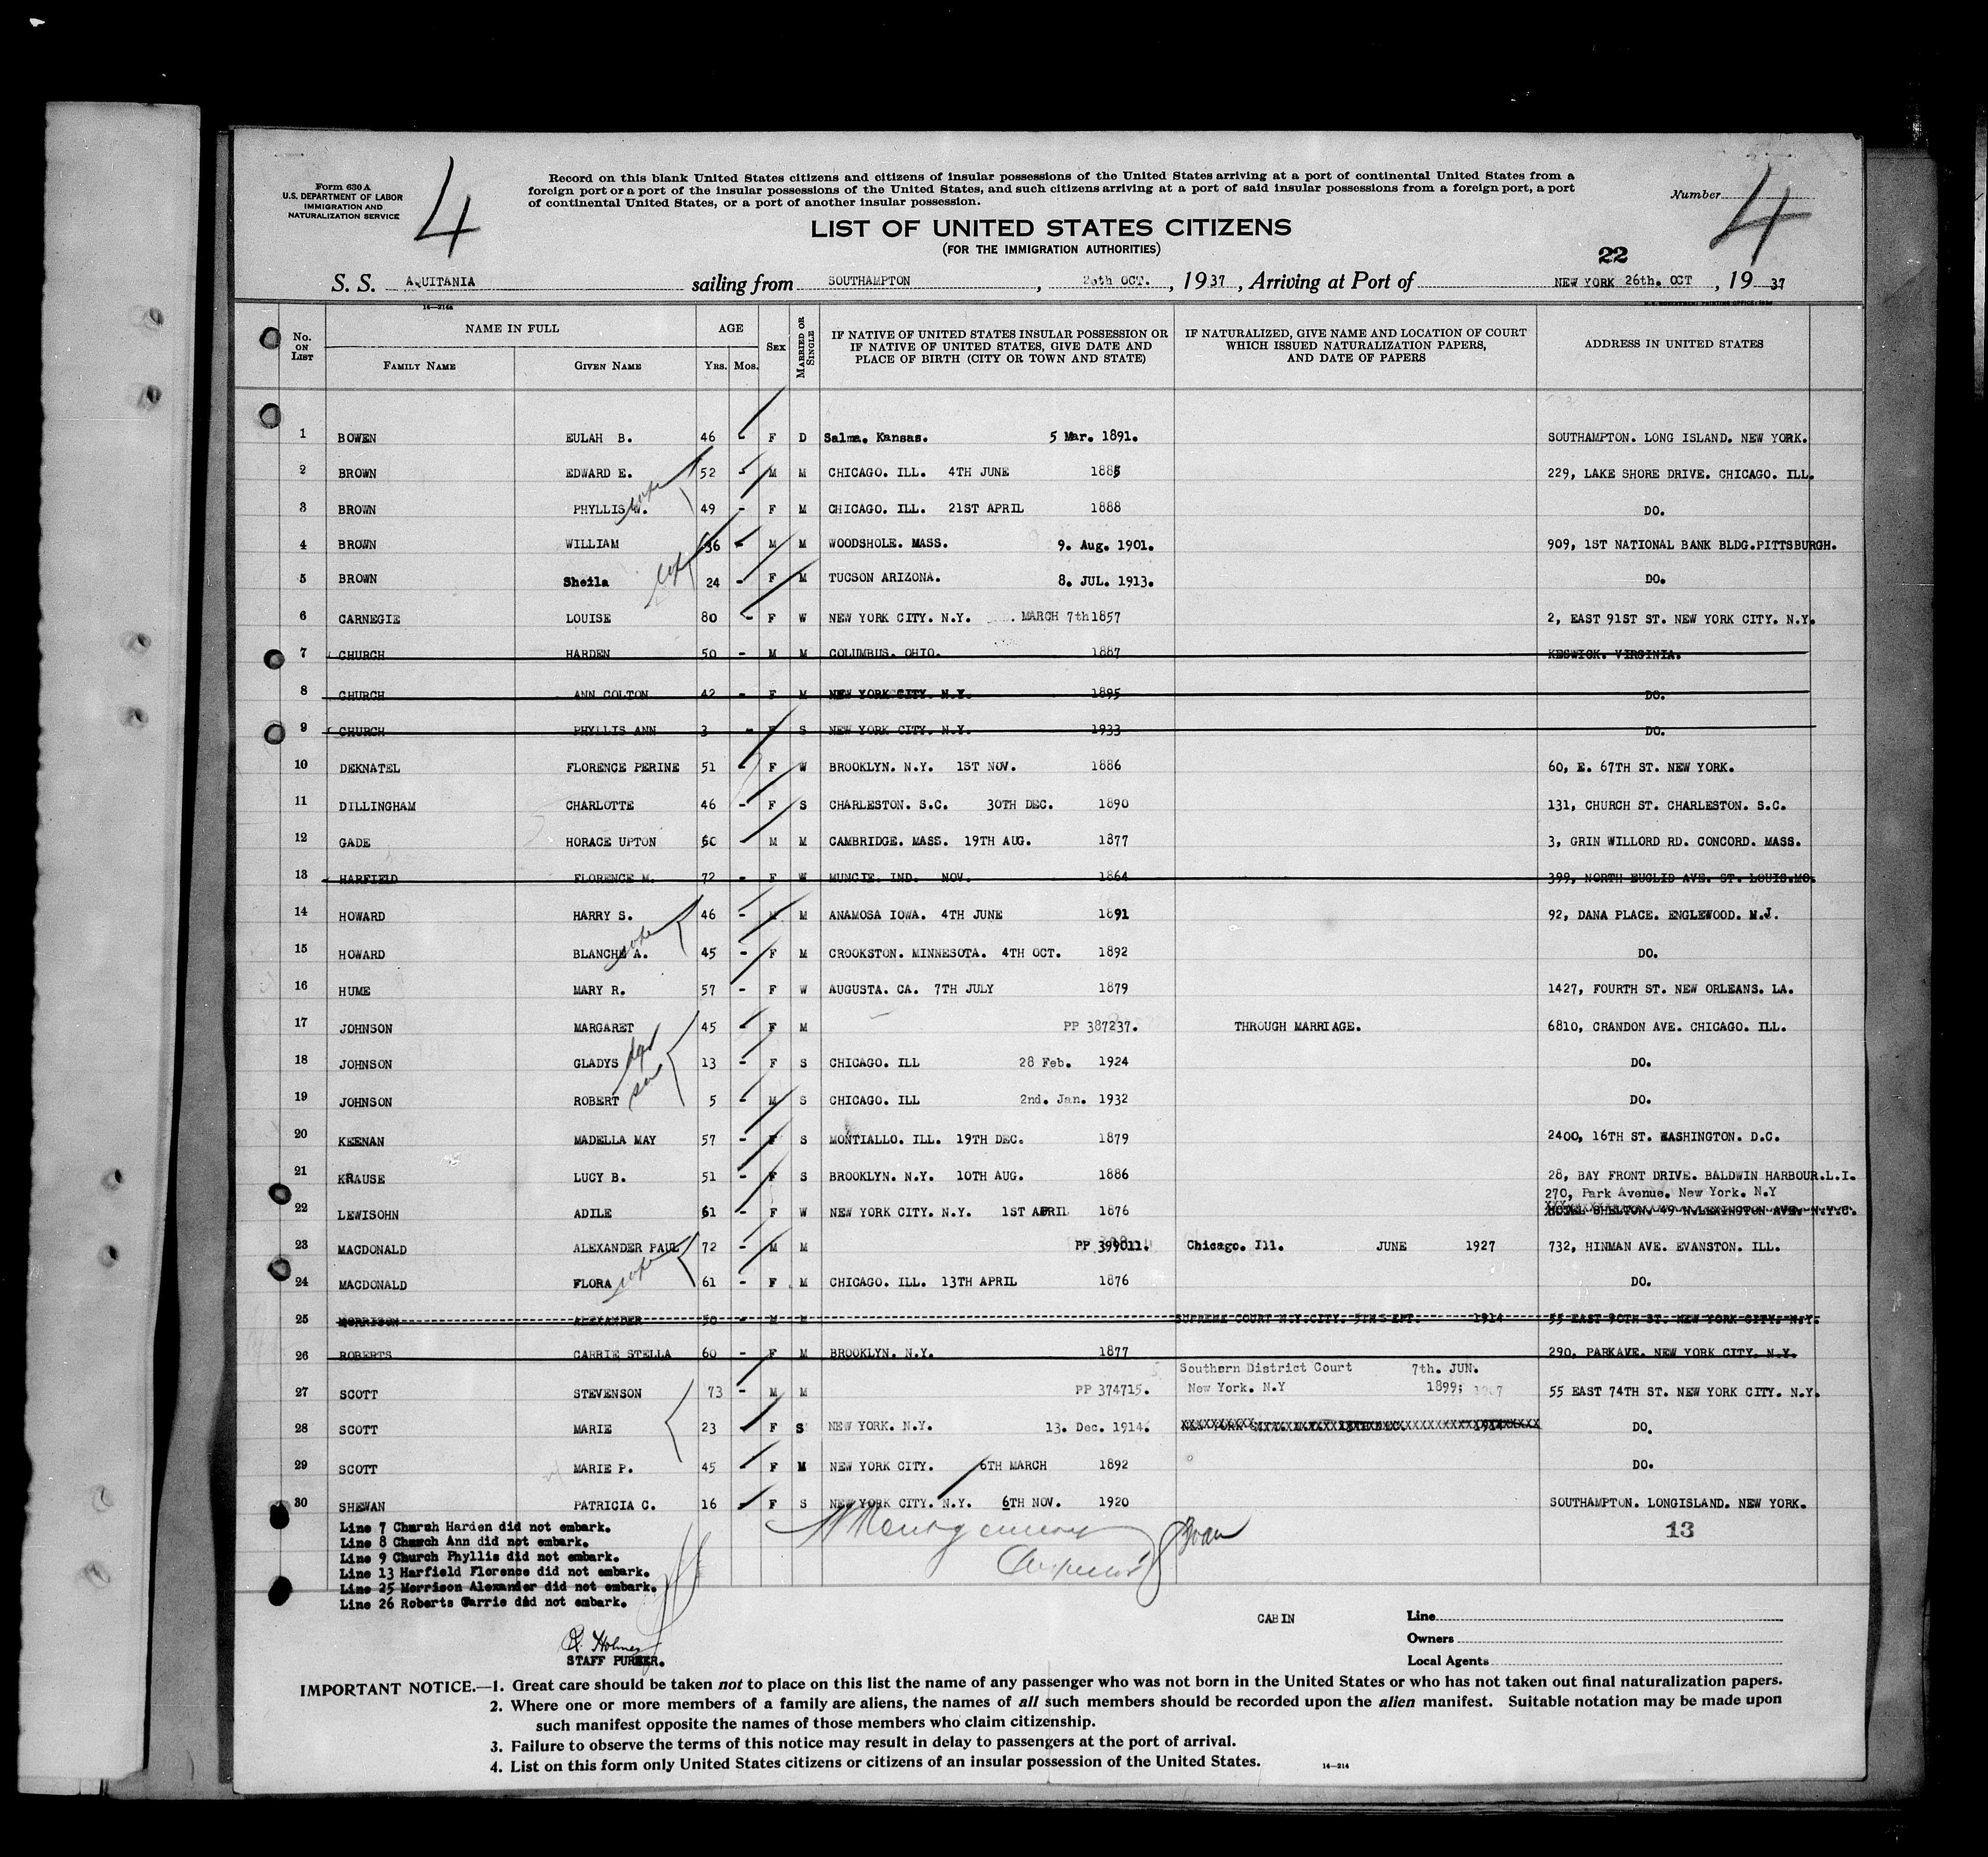 Form 630 A
U.S. DEPARTMENT OF LABOR
IMMIGRATION AND
NATURALIZATION SERVICE
4
Record on this blank United States citizens and citizens of insular possessions of the United States arriving at a port of continental United States from a
foreign port or a port of the insular possessions of the United States, and such citizens arriving at a port of said insular possessions from a foreign port, a port
of continental United States, or a port of another insular possession.
Number 4
LIST OF UNITED STATES CITIZENS
(FOR THE IMMIGRATION AUTHORITIES)
22
S. S. AQUITANIA sailing from SOUTHAMPTON, 20th OCT., 1937, Arriving at Port of NEW YORK 26th. OCT, 19 37
14—214a
No. ON LIST NAME IN FULL FAMILY NAME GIVEN NAME AGE YRS. MOS. SEX MARRIED OR SINGLE IF NATIVE OF UNITED STATES INSULAR POSSESSION OR IF NATIVE OF UNITED STATES, GIVE DATE AND PLACE OF BIRTH (CITY OR TOWN AND STATE) IF NATURALIZED, GIVE NAME AND LOCATION OF COURT WHICH ISSUED NATURALIZATION PAPERS, AND DATE OF PAPERS ADDRESS IN UNITED STATES
1 BOWEN EULAH B. 46 - F D Salma. Kansas. 5 Mar. 1891. SOUTHAMPTON. LONG ISLAND. NEW YORK.
2 BROWN EDWARD E. 52 - M M CHICAGO. ILL. 4TH JUNE 1885 229, LAKE SHORE DRIVE. CHICAGO. ILL.
3 BROWN PHYLLIS W. wife 49 - F M CHICAGO. ILL. 21ST APRIL 1888 DO.
4 BROWN WILLIAM 36 - M M WOODSHOLE. MASS. 9. Aug. 1901. 909, 1ST NATIONAL BANK BLDG.PITTSBURGH.
5 BROWN Sheila wife 24 - F M TUCSON ARIZONA. 8. JUL. 1913. DO.
6 CARNEGIE LOUISE 80 - F W NEW YORK CITY. N.Y. MARCH 7th 1857 2, EAST 91ST ST. NEW YORK CITY. N.Y.
7 CHURCH HARDEN 50 - M M COLUMBUS. OHIO. 1887 KESWICK. VIRGINIA.
8 CHURCH ANN COLTON 42 - F M NEW YORK CITY. N.Y. 1895 DO.
9 CHURCH PHYLLIS ANN 3 - F S NEW YORK CITY. N.Y. 1933 DO.
10 DEKNATEL FLORENCE PERINE 51 - F W BROOKLYN. N.Y. 1ST NOV. 1886 60, E. 67TH ST. NEW YORK.
11 DILLINGHAM CHARLOTTE 46 - F S CHARLESTON. S.C. 30TH DEC. 1890 131, CHURCH ST. CHARLESTON. S.C.
12 GADE HORACE UPTON 60 - M M CAMBRIDGE. MASS. 19TH AUG. 1877 3, GRIN WILLORD RD. CONCORD. MASS.
13 HARFIELD FLORENCE M. 72 - F W MUNCIE. IND. NOV. 1864 399, NORTH EUCLID AVE. ST. LOUIS.MO.
14 HOWARD HARRY S. 46 - M M ANAMOSA IOWA. 4TH JUNE 1891 92, DANA PLACE. ENGLEWOOD. N.J.
15 HOWARD BLANCHE A. wife 45 - F M CROOKSTON. MINNESOTA. 4TH OCT. 1892 DO.
16 HUME MARY R. 57 - F W AUGUSTA. CA. 7TH JULY 1879 1427, FOURTH ST. NEW ORLEANS. LA.
17 JOHNSON MARGARET 45 - F M PP 387237. THROUGH MARRIAGE. 6810, CRANDON AVE. CHICAGO. ILL.
18 JOHNSON GLADYS dau 13 - F S CHICAGO. ILL 28 Feb. 1924 DO.
19 JOHNSON ROBERT son 5 - M S CHICAGO. ILL 2nd. Jan. 1932 DO.
20 KEENAN MADELLA MAY 57 - F S MONTIALLO. ILL. 19TH DEC. 1879 2400, 16TH ST. WASHINGTON. D.C.
21 KRAUSE LUCY B. 51 - F S BROOKLYN. N.Y. 10TH AUG. 1886 28, BAY FRONT DRIVE. BALDWIN HARBOUR.L.I.
270, Park Avenue. New York. N.Y
22 LEWISOHN ADILE 61 - F W NEW YORK CITY. N.Y. 1ST APRIL 1876 HOTEL SHELTON. 49 N.LEXINGTON AVE. N.Y.C.
23 MACDONALD ALEXANDER PAUL 72 - M M PP 399011. Chicago. Ill. JUNE 1927 732, HINMAN AVE. EVANSTON. ILL.
24 MACDONALD FLORA wife 61 - F M CHICAGO. ILL. 13TH APRIL 1876 DO.
25 MORRISON ALEXANDER 50 - M M SUPREME COURT N.Y.CITY. 5TH SEPT. 1914 55 EAST 80TH ST. NEW YORK CITY. N.Y.
26 ROBERTS CARRIE STELLA 60 - F M BROOKLYN. N.Y. 1877 290, PARKAVE. NEW YORK CITY. N.Y.
Southern District Court 7th. JUN.
27 SCOTT STEVENSON 73 - M M PP 374715. New York. N.Y 1899; 55 EAST 74TH ST. NEW YORK CITY. N.Y.
28 SCOTT MARIE 23 - F S NEW YORK. N.Y. 13. Dec. 1914. DO.
29 SCOTT MARIE P. 45 - F M NEW YORK CITY. 6TH MARCH 1892 DO.
30 SHEWAN PATRICIA C. 16 - F S NEW YORK CITY. N.Y. 6TH NOV. 1920 SOUTHAMPTON. LONGISLAND. NEW YORK.
13
Line 7 Church Harden did not embark.
Line 8 Church Ann did not embark.
Line 9 Church Phyllis did not embark.
Line 13 Harfield Florence did not embark.
Line 25 Morrison Alexander did not embark.
Line 26 Roberts Carrie did not embark.
Montgomery
CABIN
R. Holmes
STAFF PURSER.
Line
Owners
Local Agents
IMPORTANT NOTICE.—1. Great care should be taken not to place on this list the name of any passenger who was not born in the United States or who has not taken out final naturalization papers.
2. Where one or more members of a family are aliens, the names of all such members should be recorded upon the alien manifest. Suitable notation may be made upon
such manifest opposite the names of those members who claim citizenship.
3. Failure to observe the terms of this notice may result in delay to passengers at the port of arrival.
4. List on this form only United States citizens or citizens of an insular possession of the United States.
14—214